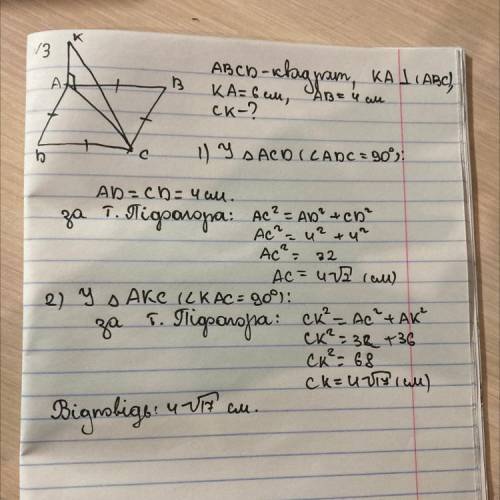 √3
K
A
B
D
C
ABCD-квадрат, KA⊥(ABC),
KA=6 см, AB=4 см
CK-?
1) У △ACD (∠ADC=90°):
AD=CD=4 см.
за т. Піфагора: AC²=AD²+CD²
AC²=4²+4²
AC²=32
AC=4√2 (см)
2) У △AKC (∠KAC=90°):
за т. Піфагора: CK²=AC²+AK²
CK²=32+36
CK²=68
CK=4√17 (см)
Відповідь: 4√17 см.